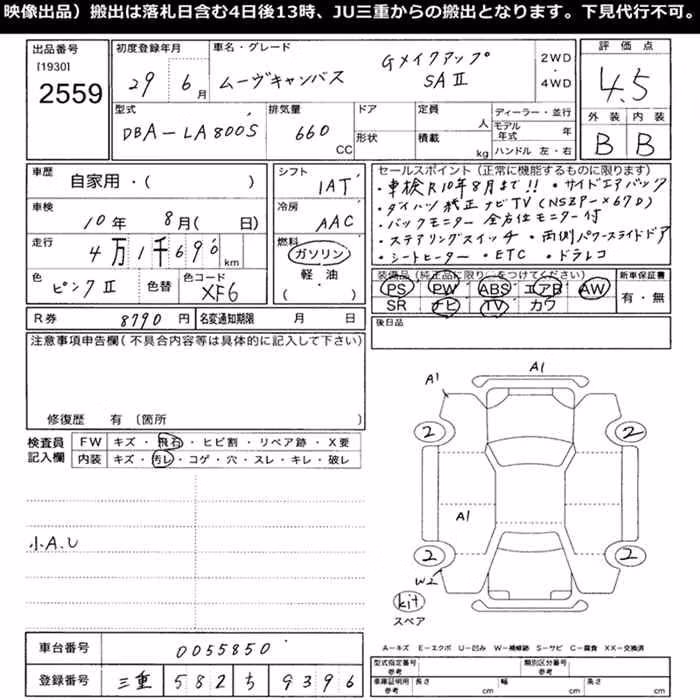 映像出品）搬出は落札日含む4日後13時、JU三重からの搬出となります。下見代行不可。
出品番号 初度登録年月 車名・グレード 評価点
[1930]
2559
29 6月 ムーヴキャンバス Gメイクアップ SAⅡ 2WD・4WD 4.5
外装 内装
B B
型式 排気量 ドア 定員 ディーラー・並行
DBA-LA800S 660 CC 人 モデル年式 年
形状 積載 kg ハンドル 左・右
車歴 自家用・( )
シフト 1AT
車検 10年 8月( 日)
冷房 AAC
走行 4万1千690km
燃料 ガソリン 軽油 ( )
色 ピンクⅡ 色替 色コード XF6
R券 8790円 名変通知期限 月 日
セールスポイント(正常に機能するものに限ります)
・車検R10年8月まで!! ・サイドエアバッグ
・ダイハツ純正ナビTV(NSZP-X67D)
・バックモニター 全方位モニター付
・ステアリングスイッチ ・両側パワースライドドア
・シートヒーター ・ETC ・ドラレコ
装備品(純正品に限り○をつけてください) 新車保証書
PS PW ABS エアB AW 有・無
SR ナビ TV カワ
後日品
注意事項申告欄(不具合内容等は具体的に記入して下さい)
修復歴 有〔箇所 〕
検査員記入欄
FW キズ・飛石・ヒビ割・リペア跡・X要
内装 キズ・汚レ・コゲ・穴・スレ・キレ・破レ
小A.U
A1
A1
2
2
A1
2
2
W2
kit
スペア
A=キズ E=エクボ U=凹み W=補修跡 S=サビ C=腐食 XX=交換済
車台番号 0055850
登録番号 三重 582 ち 9396
型式指定番号 参考 類別区分番号 参考
車庫証明用 参考 長さ cm 幅 cm 高さ cm